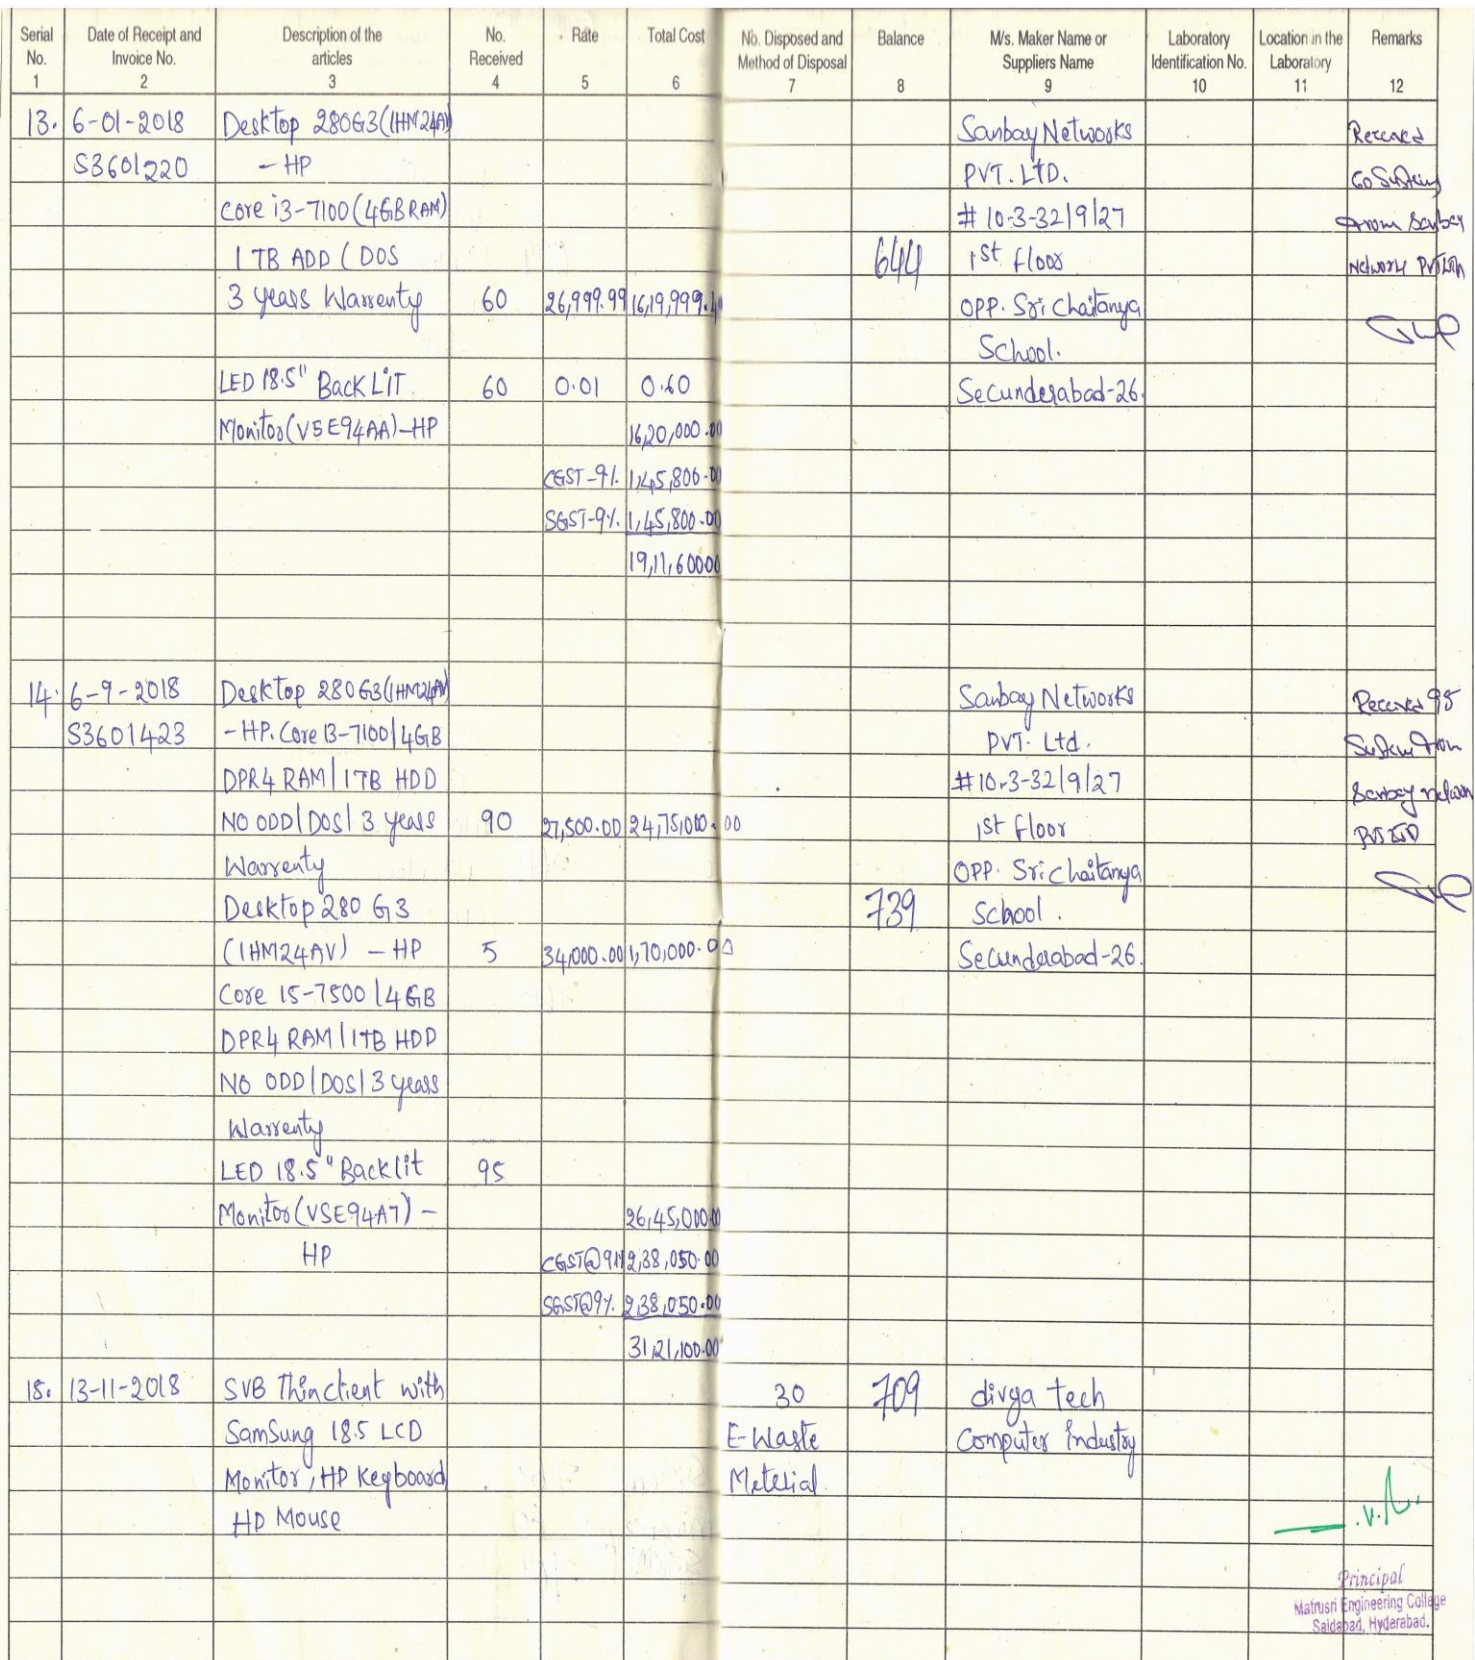 Serial No. 1 | Date of Receipt and Invoice No. 2 | Description of the articles 3 | No. Received 4 | Rate 5 | Total Cost 6 | No. Disposed and Method of Disposal 7 | Balance 8 | M/s. Maker Name or Suppliers Name 9 | Laboratory Identification No. 10 | Location in the Laboratory 11 | Remarks 12
13. 6-01-2018 Desktop 280G3(1HM24AV) Sanbay Networks Received
S3601220 - HP PVT. LTD. 60 Systems
Core i3-7100(4GB RAM) # 10-3-32/9/27 from Sanbay
1 TB ADD ( DOS 644 1st floor Network PVT LTD
3 years Warrenty 60 26,999.99 16,19,999.40 OPP. Sri Chaitanya
School.
LED 18.5" BackLiT 60 0.01 0.60 Secunderabad-26.
Monitor(V5E94AA)-HP 16,20,000.00
CGST-9%. 1,45,800.00
SGST-9%. 1,45,800.00
19,11,60000
14. 6-9-2018 Desktop 280G3(1HM24AV) Sanbay Networks Received 95
S3601423 - HP. Core I3-7100/4GB PVT. Ltd. System from
DPR4 RAM/1TB HDD #10-3-32/9/27 Sanbay
NO ODD/DOS/3 years 90 27,500.00 24,75,000.00 1st floor PVT LTD
Warrenty OPP. Sri Chaitanya
Desktop 280 G3 739 School.
(1HM24AV) - HP 5 34,000.00 1,70,000.00 Secunderabad-26.
Core I5-7500/4GB
DPR4 RAM/1TB HDD
NO ODD/DOS/3 years
Warrenty
LED 18.5" Backlit 95
Monitor(VSE94A7) - 26,45,000.00
HP CGST@9% 2,38,050.00
SGST@9%. 2,38,050.00
31,21,100.00
15. 13-11-2018 SVB Thinclient with 30 709 divya tech
Samsung 18.5 LCD E-Waste Computer Industry
Monitor, HP Keyboard Meterial.
HP Mouse
Principal
Matrusri Engineering College
Saidabad, Hyderabad.